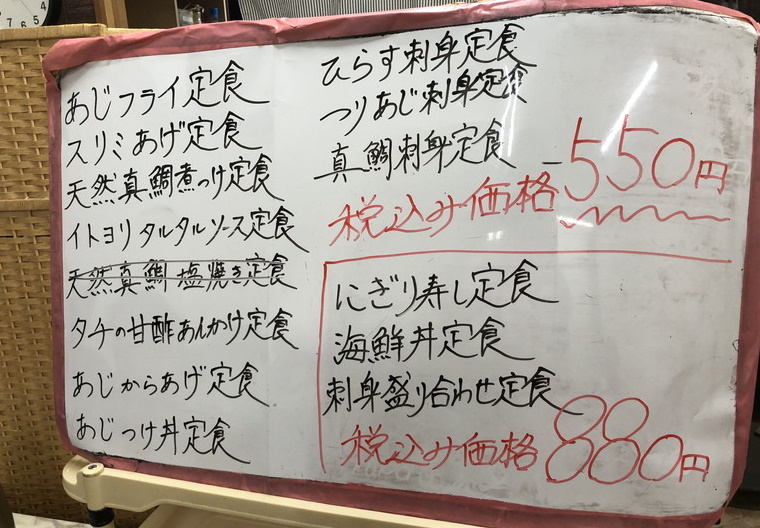 あじフライ定食
スリミあげ定食
天然真鯛煮つけ定食
イトヨリタルタルソース定食
天然真鯛塩焼き定食
タチの甘酢あんかけ定食
あじからあげ定食
あじつけ丼定食
ひらす刺身定食
つりあじ刺身定食
真鯛刺身定食
税込み価格550円
にぎり寿し定食
海鮮丼定食
刺身盛り合わせ定食
税込み価格880円
4
5
6
7